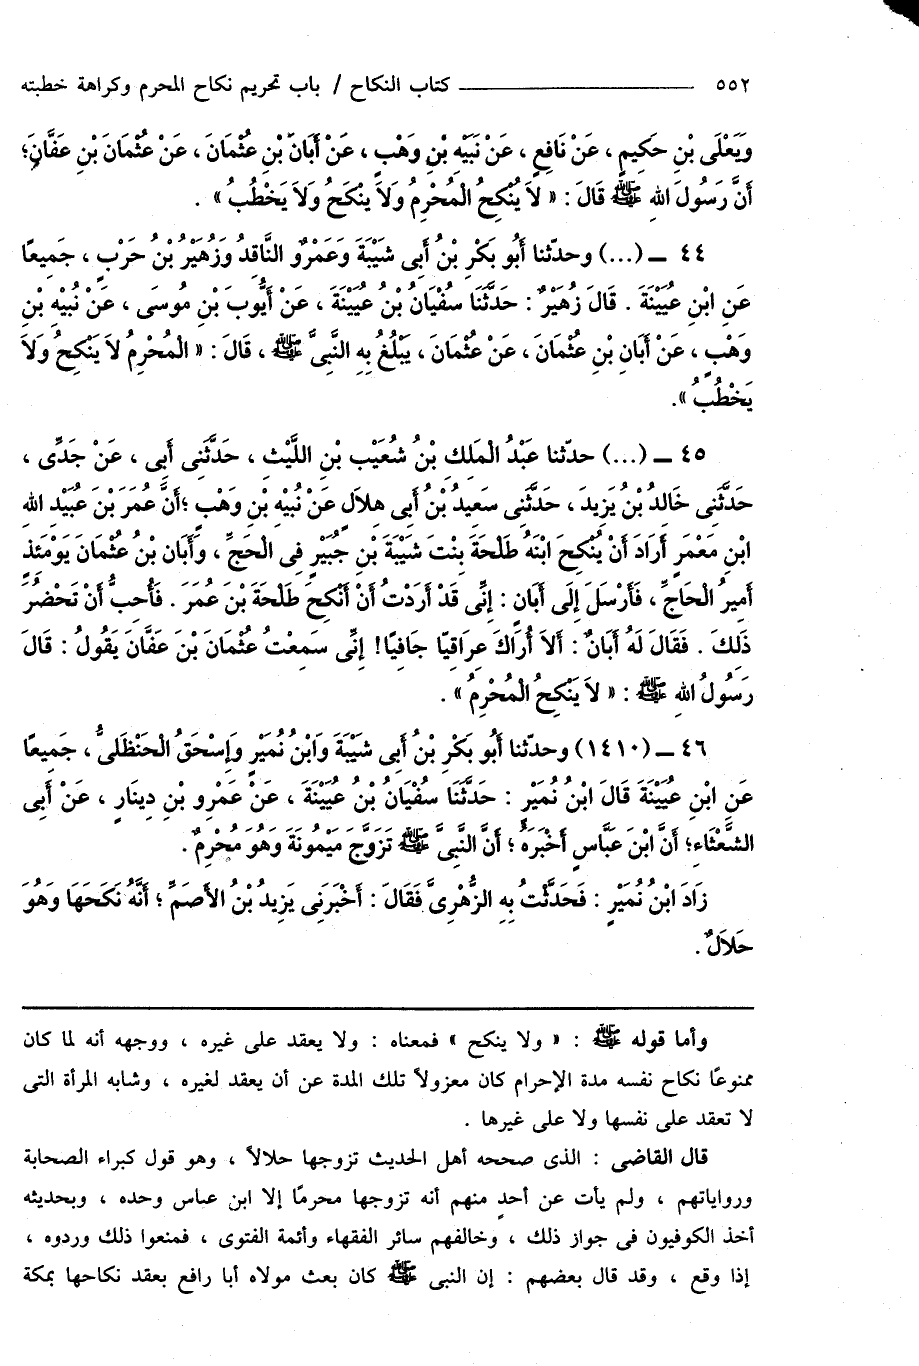 ٥٥٢ ــــــــــــــــــــ كتاب النكاح / باب تحريم نكاح المحرم وكراهة خطبته
وَيَعْلَى بْنِ حَكِيمٍ ، عَنْ نَافِعٍ ، عَنْ نَبَيْهِ بْنِ وَهْبٍ ، عَنْ أَبَانَ بْنِ عُثْمَانَ ، عَنْ عُثْمَانَ بْنِ عَفَّانَ؛
أَنَّ رَسُولَ اللهِ ﷺ قَالَ : « لاَ يُنْكِحُ الْمُحْرِمُ وَلاَ يَنْكَحُ وَلاَ يَخْطُبُ » .
٤٤ ــ (...) وحدّثنا أَبُو بَكْرِ بْنُ أَبِى شَيْبَةَ وَعَمْرٌو النَّاقِدُ وَزُهَيْرُ بْنُ حَرْبٍ ، جَمِيعًا
عَنِ ابْنِ عُيَيْنَةَ . قَالَ زُهَيْرٌ : حَدَّثَنَا سُفْيَانُ بْنُ عُيَيْنَةَ ، عَنْ أَيُّوبَ بْنِ مُوسَى ، عَنْ نُبَيْهِ بْنِ
وَهْبٍ ، عَنْ أَبَانِ بْنِ عُثْمَانَ ، عَنْ عُثْمَانَ ، يَبْلُغُ بِهِ النَّبِىَّ ﷺ ، قَالَ : « الْمُحْرِمُ لاَ يَنْكِحُ وَلاَ
يَخْطُبُ ».
٤٥ ــ (...) حدّثنا عَبْدُ الْمَلِكِ بْنُ شُعَيْبِ بْنِ اللَّيْثِ ، حَدَّثَنِى أَبِى ، عَنْ جَدِّى ،
حَدَّثَنِى خَالِدُ بْنُ يَزِيدَ ، حَدَّثَنِى سَعِيدُ بْنُ أَبِى هِلاَلٍ عَنْ نُبَيْهِ بْنِ وَهْبٍ ؛أَنَّ عُمَرَ بْنَ عُبَيْدِ اللهِ
ابْنِ مَعْمَرٍ أَرَادَ أَنْ يُنْكِحَ ابْنَهُ طَلْحَةَ بِنْتَ شَيْبَةَ بْنِ جُبَيْرٍ فِى الْحَجِّ ، وَأَبَان بْنُ عُثْمَانَ يَوْمَئِذٍ
أَمِيرُ الْحَاجِّ ، فَأَرْسَلَ إِلَى أَبَانٍ : إِنِّى قَدْ أَرَدْتُ أَنْ أُنْكِحَ طَلْحَةَ بْنَ عُمَرَ . فَأُحِبُّ أَنْ تَحْضُرَ
ذَلِكَ . فَقَالَ لَهُ أَبَانٌ : أَلاَ أُرَاكَ عِرَاقِيًا جَافِيًا! إِنِّى سَمِعْتُ عُثْمَانَ بْنَ عَفَّانَ يَقُولُ : قَالَ
رَسُولُ اللهِ ﷺ : « لاَ يَنْكِحُ الْمُحْرِمُ » .
٤٦ ــ (١٤١٠) وحدّثنا أَبُو بَكْرِ بْنُ أَبِى شَيْبَةَ وَابْنُ نُمَيْرٍ وَإِسْحَقُ الْحَنْظَلِىُّ ، جَمِيعًا
عَنِ ابْنِ عُيَيْنَةَ قَالَ ابْنُ نُمَيْرٍ : حَدَّثَنَا سُفْيَانُ بْنُ عُيَيْنَةَ ، عَنْ عَمْرِو بْنِ دِينَارٍ ، عَنْ أَبِى
الشَّعْثَاءِ؛ أَنَّ ابْنَ عَبَّاسٍ أَخْبَرَهُ ؛ أَنَّ النَّبِىَّ ﷺ تَزَوَّجَ مَيْمُونَةَ وَهُوَ مُحْرِمٌ .
زَادَ ابْنُ نُمَيْرٍ : فَحَدَّثْتُ بِهِ الزُّهْرِىَّ فَقَالَ : أَخْبَرَنِى يَزِيدُ بْنُ الأَصَمِّ ؛ أَنَّهُ نَكَحَهَا وَهُوَ
حَلاَلٌ .
وأما قوله ﷺ : « ولا ينكح » فمعناه : ولا يعقد على غيره ، ووجهه أنه لما كان
ممنوعًا نكاح نفسه مدة الإحرام كان معزولاً تلك المدة عن أن يعقد لغيره ، وشابه المرأة التى
لا تعقد على نفسها ولا على غيرها .
قال القاضى : الذى صححه أهل الحديث تزوجها حلالاً ، وهو قول كبراء الصحابة
ورواياتهم ، ولم يأت عن أحدٍ منهم أنه تزوجها محرمًا إلا ابن عباس وحده ، وبحديثه
أخذ الكوفيون فى جواز ذلك ، وخالفهم سائر الفقهاء وأئمة الفتوى ، فمنعوا ذلك وردوه ،
إذا وقع ، وقد قال بعضهم : إن النبى ﷺ كان بعث مولاه أبا رافع بعقد نكاحها بمكة